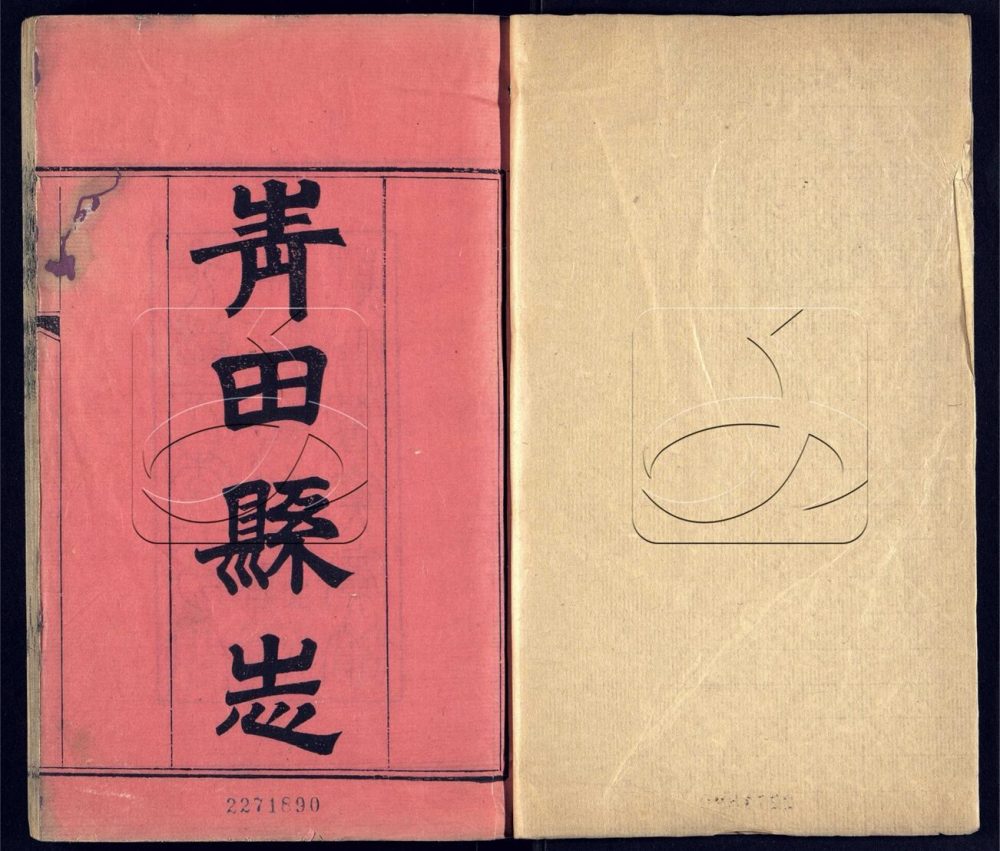 青田縣志
2271890